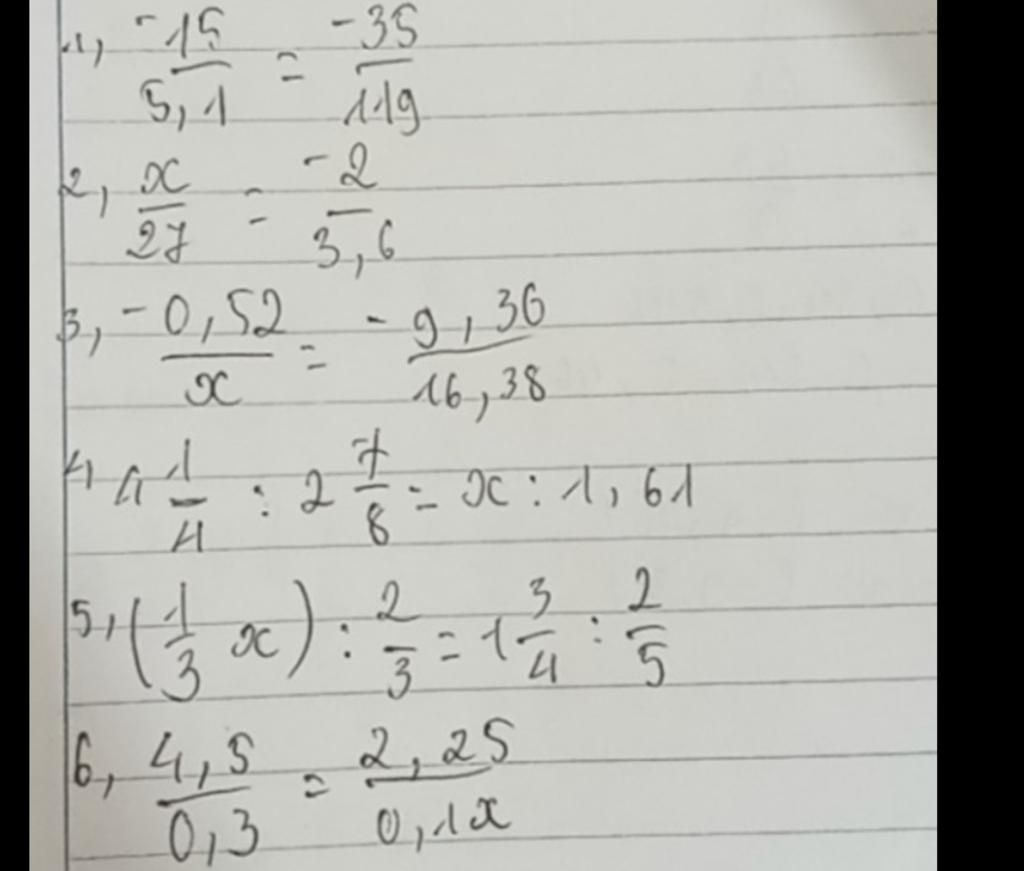 1, -15/5,1 = -35/119
2, x/27 = -2/3,6
3, -0,52/x = -9,36/16,38
4, 4 1/4 : 2 7/8 = x : 1,61
5, (1/3 x) : 2/3 = 1 3/4 : 2/5
6, 4,5/0,3 = 2,25/0,1x